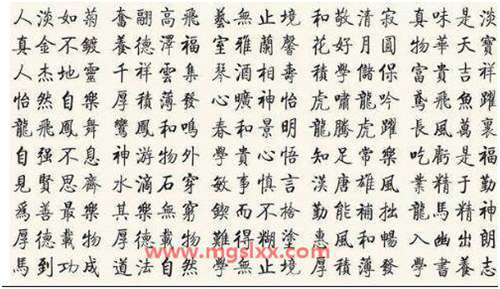 人淡如菊 奮翮高飛 藝無止境 和敬清寂 真味是淡
真金不鍍 養德澤福 室雅蘭馨 花好月圓 物華天寶
人杰地靈 千祥雲集 琴酒相壽 積學儲保 富貴吉祥
怡然自樂 厚積薄發 心曠神怡 虎嘯龍吟 鳶飛魚躍
龍飛鳳舞 鸞鳳和鳴 春和景明 龍騰虎躍 長風萬裏
自强不息 神游物外 學貴心悟 知足常樂 吃虧是福
見賢思齊 水滴石穿 敏事慎言 漢唐雄風 業精于勤
爲善最樂 其樂無窮 而不 勤能補拙 龍馬精神
厚德載物 厚德載物 難得糊塗 惠風和暢 幽出朗
馬到功成 道法自然 學無止境 厚積薄發 學書養志
www.mgslxx.com